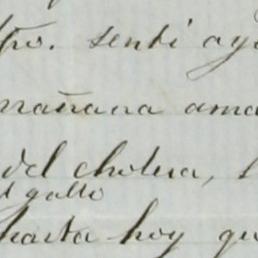 tro. senti ay
mañana ama
del cholera, l
el gallo
hasta hoy qu